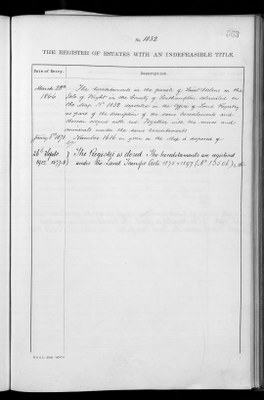 No. 1032
THE REGISTER OF ESTATES WITH AN INDEFEASIBLE TITLE.
Date of Entry.
Description.
March 28th The hereditaments in the parish of Saint Helens in the
1866 Isle of Wight in the County of Southampton delineated on
the Map No. 1032 deposited in the Office of Land Registry
as part of the description of the same hereditaments and
thereon edged with red Together with the mines and
minerals under the same hereditaments
Number 1616 in green on the Map is disposed of
The Register is closed. The hereditaments are registered
under the Land Transfer Acts 1875 & 1897